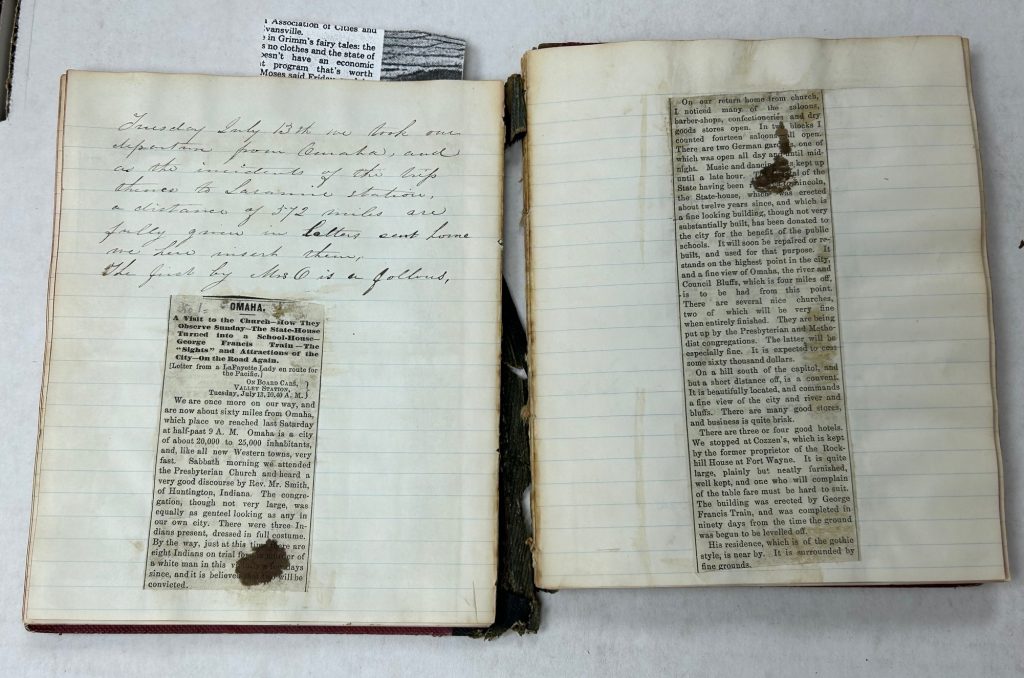 Association of Cities and
vansville.
in Grimm's fairy tales: the
s no clothes and the state of
esn't have an economic
t program that's worth
Moses said Friday
Tuesday July 13th we took our
departure from Omaha, and
as the incidents of the trip
thence to Laramie station,
a distance of 572 miles are
fully given in letters sent home
we here insert them,
The first by Mrs O is a follows,
No 1
OMAHA.
A Visit to the Church—How They
Observe Sunday—The State-House
Turned into a School-House—
George Francis Train—The
"Sights" and Attractions of the
City—On the Road Again.
[Letter from a LaFayette Lady en route for
the Pacific.]
ON BOARD CARS,
VALLEY STATION,
Tuesday, July 13, 10,40 A. M.
We are once more on our way, and
are now about sixty miles from Omaha,
which place we reached last Saturday
at half-past 9 A. M. Omaha is a city
of about 20,000 to 25,000 inhabitants,
and, like all new Western towns, very
fast. Sabbath morning we attended
the Presbyterian Church and heard a
very good discourse by Rev. Mr. Smith,
of Huntington, Indiana. The congre-
gation, though not very large, was
equally as genteel looking as any in
our own city. There were three In-
dians present, dressed in full costume.
By the way, just at this time there are
eight Indians on trial for of
a white man in this days
since, and it is believed will be
convicted.
On our return home from church,
I noticed many of the saloons,
barber-shops, confectioneries and dry
goods stores open. In two blocks I
counted fourteen saloons all open.
There are two German gardens, one of
which was open all day and until mid-
night. Music and dancing was kept up
until a late hour. of the
State having been Lincoln,
the State-house, which was erected
about twelve years since, and which is
a fine looking building, though not very
substantially built, has been donated to
the city for the benefit of the public
schools. It will soon be repaired or re-
built, and used for that purpose. It
stands on the highest point in the city,
and a fine view of Omaha, the river and
Council Bluffs, which is four miles off,
is to be had from this point.
There are several nice churches,
two of which will be very fine
when entirely finished. They are being
put up by the Presbyterian and Metho-
dist congregations. The latter will be
especially fine. It is expected to cost
some sixty thousand dollars.
On a hill south of the capitol, and
but a short distance off, is a convent.
It is beautifully located, and commands
a fine view of the city and river and
bluffs. There are many good stores,
and business is quite brisk.
There are three or four good hotels.
We stopped at Cozzen's, which is kept
by the former proprietor of the Rock-
hill House at Fort Wayne. It is quite
large, plainly but neatly furnished,
well kept, and one who will complain
of the table fare must be hard to suit.
The building was erected by George
Francis Train, and was completed in
ninety days from the time the ground
was begun to be levelled off.
His residence, which is of the gothic
style, is near by. It is surrounded by
fine grounds.